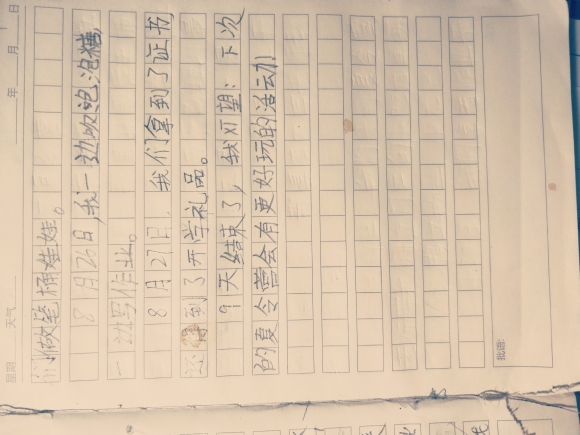 年 月 日
星期 天气
们做笔桶娃娃。
8月26日,我一边吹泡泡糖,
一边写作业。
8月27日,我们拿到了证书
还得到了开学礼品。
9天结束了,我希望:下次
的夏令营会有更好玩的活动